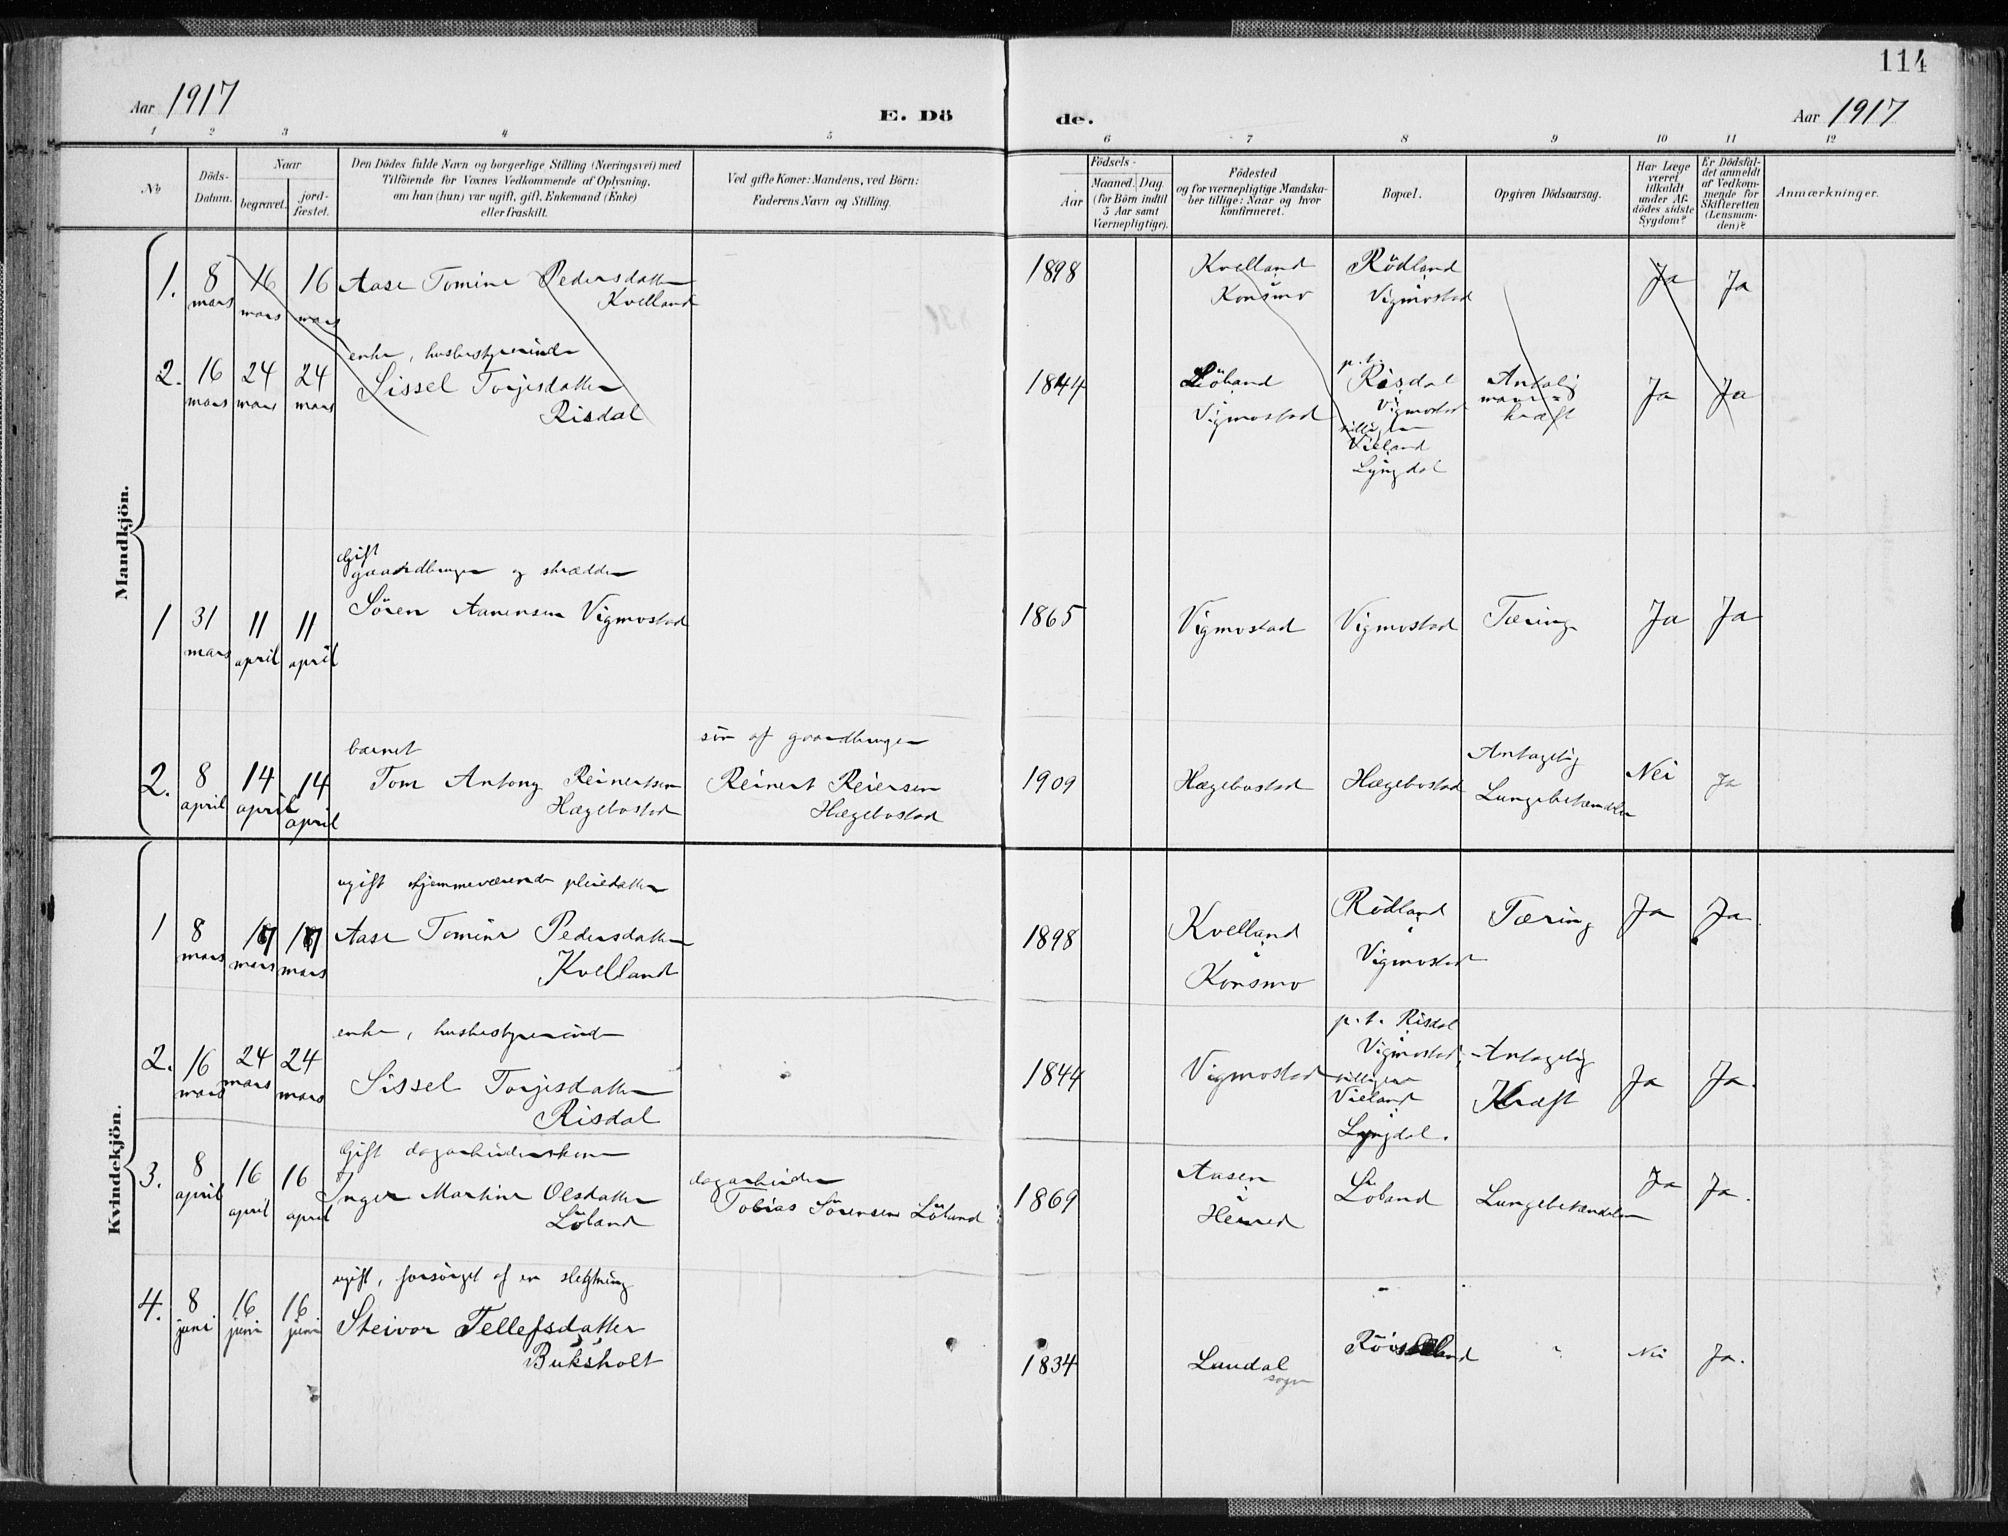 114
Aar 1917
E. Dö
de.
Aar 1917
1 2 3 4 5
6 7 8 9 10 11 12
No
Döds-
Datum.
Naar
begravet.
jord-
fæstet.
Den Dödes fulde Navn og borgerlige Stilling (Næringsvei) med
Tilföiende for Voxnes Vedkommende af Oplysning,
om han (hun) var ugift, gift, Enkemand (Enke)
eller fraskilt.
Ved gifte Koner: Mandens, ved Börn:
Faderens Navn og Stilling.
Födsels-
Aar
Maaned. Dag.
(for Börn indtil
5 Aar samt
Værnepligtige).
Födested
og for værnepligtige Mandska-
ber tillige: Naar og hvor
konfirmeret.
Bopæl.
Opgiven Dödsaarsag.
Har Læge
været
tilkaldt
under Af-
dödes sidste
Sygdom?
Er Dödsfal-
det anmeldt
af Vedkom-
mende for
Skifteretten
(Lensman-
den)?
Anmærkninger.
Mandkjön.
1. 8 mars 16 mars 16 mars
Aase Tomine Pedersdatter
Kvelland
1898
Kvelland
Konsmo
Rödland
Vigmostad
Ja Ja
2. 16 mars 24 mars 24 mars
enke, husbestyrerinde
Sissel Torjesdatter
Risdal
1844
Löland
Vigmostad
p.t.
Risdal
Vigmostad
Vieland
Lyngdal
kræft
Ja Ja
1 31 mars 11 april 11 april
Gift
gaardbruger og skrædder
Sören Aanensen Vigmostad
1865
Vigmostad
Vigmostad
Tæring
Ja Ja
2. 8 april 14 april 14 april
barnet
Tom Antony Reinertsen
Hægebostad
sön af gaardbruger
Reinert Reiersen
Hægebostad
1909
Hægebostad
Hægebostad
Antagelig
Lungebetændelse
Nei Ja
Kvindekjön.
1 8 mars 17 mars 17 mars
ugift hjemmeværende pleiedatter
Aase Tomine Pedersdatter
Kvelland
1898
Kvelland
Konsmo
Rödland
Vigmostad
Tæring
Ja Ja.
2. 16 mars 24 mars 24 mars
enke, husbestyrerinde
Sissel Torjesdatter
Risdal
1844
Vigmostad
p.t. Risdal
Vigmostad,
Vieland
Lyngdal.
Antagelig
Kræft
Ja Ja.
3. 8 april 16 april 16 april
Gift dagarbeiderskone
Inger Martine Olsdatter
Löland
dagarbeider
Tobias Sörensen Löland
1869
Aasen
Herred
Löland
Lungebetændelse
Ja Ja.
4. 8 juni 16 juni 16 juni
ugift, forsörget af en slegtning
Steivor Tellefsdatter
Buksholt
1834
Laudal
sogn
Nei Ja.